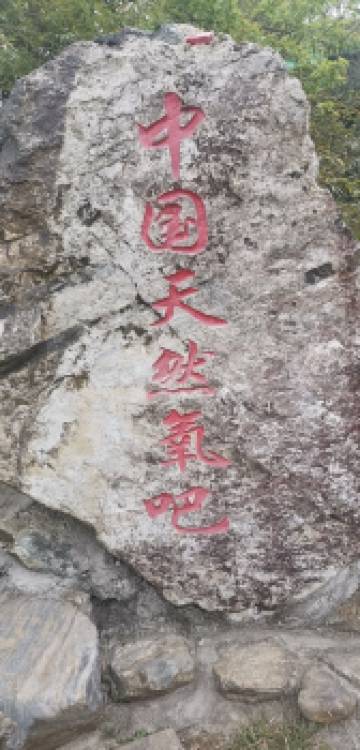 中国天然氧吧